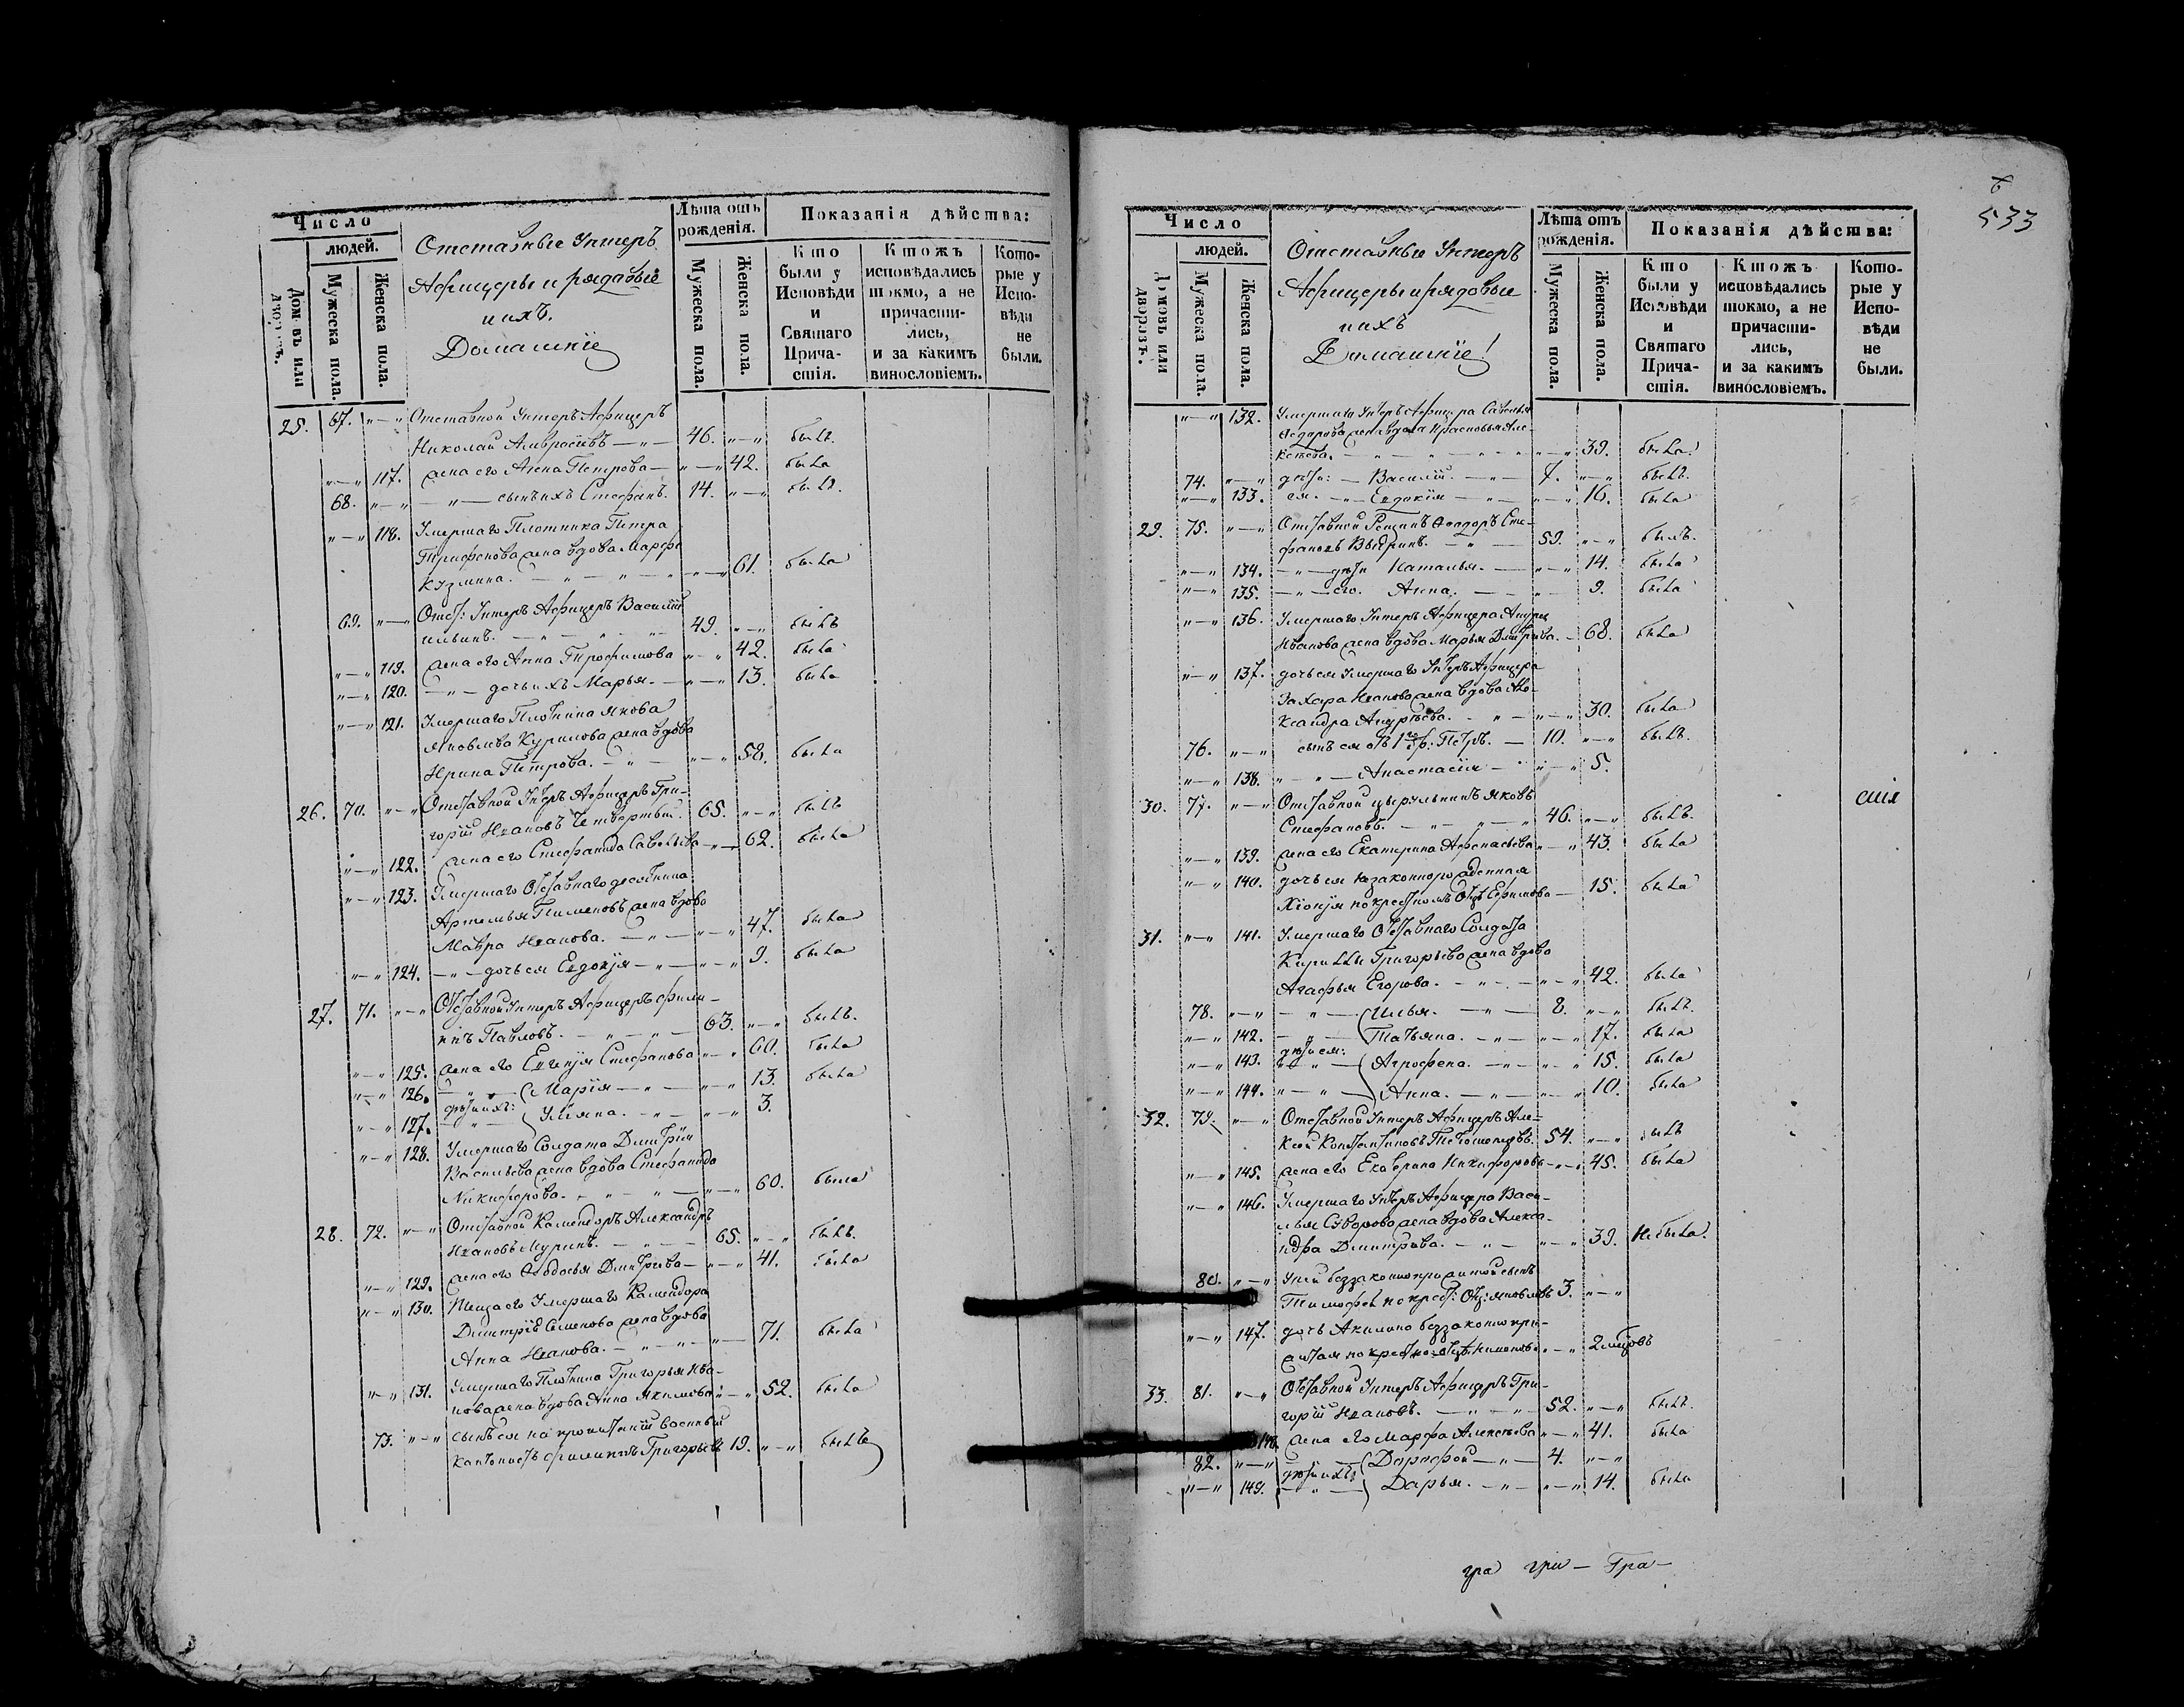 Число
людей.
Домовъ или дворовъ.
Мужеска пола.
Женска пола.
Отставные Унтеръ
Афицеры и рядовые
и ихъ
Домашніе
Лѣта отъ рожденія.
Мужеска пола.
Женска пола.
Показанія дѣйства:
Кто были у Исповѣди и Святаго Прича-стія.
Ктожъ исповѣдались токмо, а не причасти-лись, и за какимъ винословіемъ.
Кото-рые у Испо-вѣди не были.
25. 67. „—„ Отставной Унтеръ Афицеръ
Николай Амвросіевъ —„— 46. „—„ былъ.
„—„ 117. жена его Анна Петрова — „—„ 42. была
68. „—„ —„— сынъ ихъ Стефанъ. 14. „—„ былъ.
„—„ 118. Умершаго Плотника Петра
Трифонова жена вдова Марфа
Кузмина. —„—„— „—„ 61. была
69. „—„ Отст: Унтеръ Афицеръ Василій
Ильинъ. —„—„— 49. „—„ былъ
„—„ 119. жена его Анна Трофимова „—„ 42. была
„—„ 120. —„— дочь ихъ Марья. — „—„ 13. была
„—„ 121. Умершаго Плотника Якова
Яковлева Курилова жена вдова
Ирина Петрова. —„— „—„ 58. была
26. 70. „—„ Отставной Унтеръ Афицеръ Гри-
горій Ивановъ Четвертый. 65. „—„ былъ
„—„ 122. жена его Стефанида Савельева „—„ 62. была
„—„ 123. Умершаго Отставнаго десятника
Артемья Пименовъ жена вдова
Мавра Иванова. —„— „—„ 47. была
„—„ 124. —„— дочь ея Евдокія —„— „—„ 9. была
27. 71. „—„ Отставной Унтеръ Афицеръ Фили-
пъ Павловъ. —„—„— 63. „—„ былъ.
„—„ 125. жена его Евгенія Стефанова „—„ 60. была
„—„ 126. —„— Марія —„— „—„ 13. была
дѣти ихъ:
„—„ 127. —„— Уліяна. —„— „—„ 3.
„—„ 128. Умершаго Солдата Димитрія
Васильева жена вдова Стефанида
Никифорова. —„—„— „—„ 60. была
28. 72. „—„ Отставной Камендоръ Александръ
Ивановъ Муринъ. —„— 65. „—„ былъ.
„—„ 129. жена его Ѳеодосья Дмитріева — „—„ 41. была
„—„ 130. теща его Умершаго Камендора
Димитрія Семенова жена вдова
Анна Иванова. —„—„— „— 71. была
„—„ 131. Умершаго Плотника Григорья Ива-
нова жена вдова Анна Якимова „—„ 52. была
73. „—„ сынъ ея на пропитаніи военный
кантонистъ Филиппъ Григорьевъ 19. „—„ былъ
533
Число
людей.
Домовъ или дворовъ.
Мужеска пола.
Женска пола.
Отставные Унтеръ
Афицеры и рядовые
и ихъ
Домашніе
Лѣта отъ рожденія.
Мужеска пола.
Женска пола.
Показанія дѣйства:
Кто были у Исповѣди и Святаго Прича-стія.
Ктожъ исповѣдались токмо, а не причасти-лись, и за какимъ винословіемъ.
Кото-рые у Испо-вѣди не были.
„—„ 132. Умершаго Унтеръ Афицера Савелья
Ѳедорова жена вдова Прасковья Але-
ксѣева. —„—„—„— „—„ 39. была
74. „—„ дѣти: — Василій. —„— 7. „—„ былъ.
„—„ 133. ея. —„— Евдокія —„— „—„ 16. была
29. 75. „—„ Отставной Ѳеодоръ Сте-
фановъ Выдринъ. —„— 59. „—„ былъ.
„—„ 134. —„— дѣти Наталья. — „—„ 14. была
„—„ 135. —„— его. Анна. — „—„ 9. была
„—„ 136. Умершаго Унтеръ Афицера Андрея
Иванова жена вдова Марья Дмитріева. — 68. была
„—„ 137. дочь ея Умершаго Унтеръ Афицера
Захара Иванова жена вдова Але-
ксандра Андрѣева. —„— „—„ 30. была
76. „—„ сынъ ея отъ 1го бр: Петръ. — 10. „—„ былъ.
„—„ 138. „—„— Анастасія — „—„ 5.
30. 77. „—„ Отставной цырульникъ Яковъ
Стефановъ. —„—„— 46. „—„ былъ.
„—„ 139. жена его Екатерина Афанасьева „—„ 43. была
„—„ 140. дочь ея незаконнорожденная
Хіонія по крестномъ Отцѣ Ефимова — 15. была
31. „—„ 141. Умершаго Отставнаго Солдата
Кириллы Григорьева жена вдова
Агафья Егорова. —„— „—„ 42. была
78. „—„ —„— Илья. —„— 8. „—„ былъ.
„—„ 142. —„— Татьяна. —„— „—„ 17. была
дѣти ея:
„—„ 143. „—„ Агрофена. —„— „—„ 15. была
„—„ 144. „—„ Анна. —„— „—„ 10. была
32. 79. „—„ Отставной Унтеръ Афицеръ Але-
ксѣй Константиновъ 54. „—„ былъ
„—„ 145. жена его Екатерина Никифорова „—„ 45. была
„—„ 146. Умершаго Унтеръ Афицера Васи-
лья Суворова жена вдова Алекса-
ндра Дмитріева. —„— „—„ 39. Не была.
80. „—„ У ней беззаконноприжитой сынъ
Тимофей по крест: Отц: Яковлевъ 3. „—„
„—„ 147. дочь Акилина беззаконнопри-
житая по крестно: отцѣ „—„ 2 мцовъ
33. 81. „—„ Отставной Унтеръ Афицеръ Гри-
горій Ивановъ. —„—„— 52. „—„ былъ.
148. жена его Марфа Алексѣева „—„ 41. была
82. „—„ Дорофей —„— 4. „—„
дѣти ихъ
„—„ 149. —„— Дарья. —„— „—„ 14. была
гра гри — Гра —